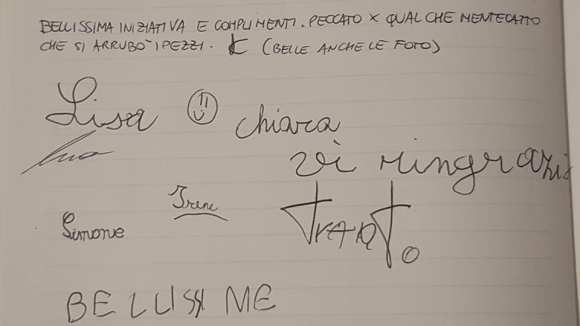 BELLISSIMA INIZIATIVA E COMPLIMENTI. PECCATO X QUALCHE MENTECATTO
CHE SI ARRUBO' I PEZZI. (BELLE ANCHE LE FOTO)
Lisa
chiara
vi ringrazio
Irene
Simone
BELLISSIME